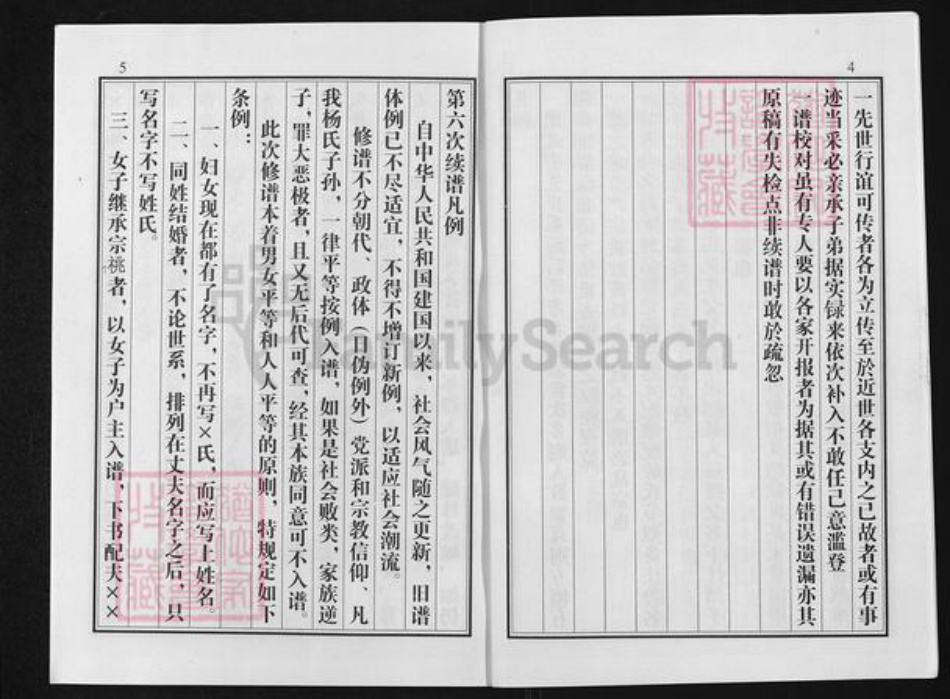 4
一先世行谊可传者各为立传至於近世各支内之已故者或有事
迹当采必亲承子弟据实録来依次补入不敢任己意滥登
一谱校对虽有专人要以各家开报者为据其或有错误遗漏亦其
原稿有失检点非续谱时敢於疏忽
5
第六次续谱凡例
自中华人民共和国建国以来，社会风气随之更新，旧谱
体例已不尽适宜，不得不增订新例，以适应社会潮流。
修谱不分朝代、政体（日伪例外）党派和宗教信仰、凡
我杨氏子孙，一律平等按例入谱，如果是社会败类，家族逆
子，罪大恶极者，且又无后代可查，经其本族同意可不入谱。
此次修谱本着男女平等和人人平等的原则，特规定如下
条例：
一、妇女现在都有了名字，不再写×氏，而应写上姓名。
二、同姓结婚者，不论世系，排列在丈夫名字之后，只
写名字不写姓氏。
三、女子继承宗祧者，以女子为户主入谱，下书配夫××
FamilySearch